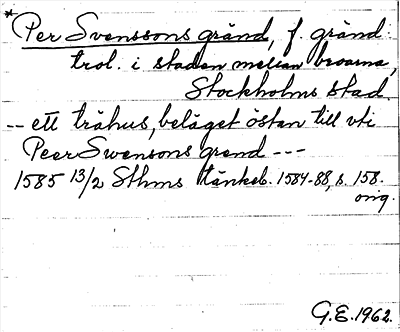 * Per Svenssons gränd, f. gränd:
trol. i staden mellan broarna,
Stockholms stad.
-- ett trähus, beläget östan till vti
Peer Swensons grend ---
1585 13/2 Sthms tänkeb. 1584-88, s. 158.
orig.
G.E. 1962.